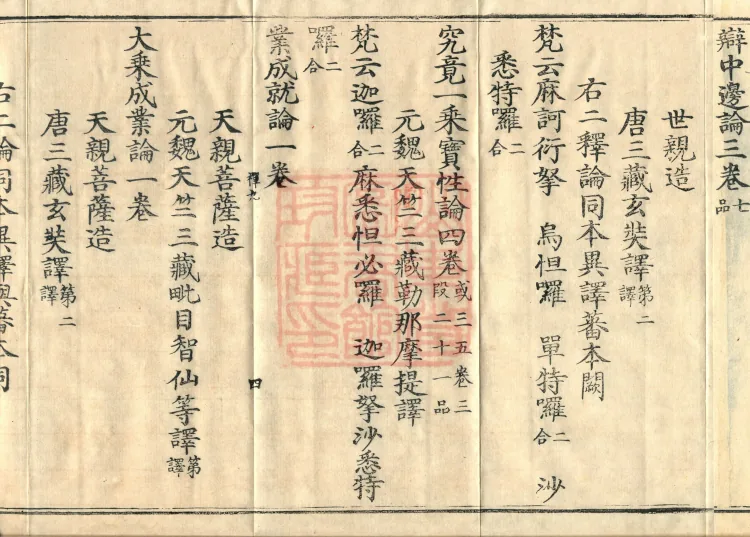 辯中邊論三卷七品
世親造
唐三藏玄奘譯第二譯
右二釋論同本異譯蕃本闕
梵云麻訶衍拏 烏怛囉 單特囉二合 沙
悉特囉二合
究竟一乘寶性論四卷或三五卷三段二十一品
元魏天竺三藏勒那摩提譯
梵云迦囉二合麻悉怛必囉 迦囉拏沙悉特
囉二合
業成就論一卷
禪九
四
天親菩薩造
元魏天竺三藏毗目智仙等譯第譯
大乘成業論一卷
天親菩薩造
唐三藏玄奘譯第二譯
右二論同本異譯與蕃本同